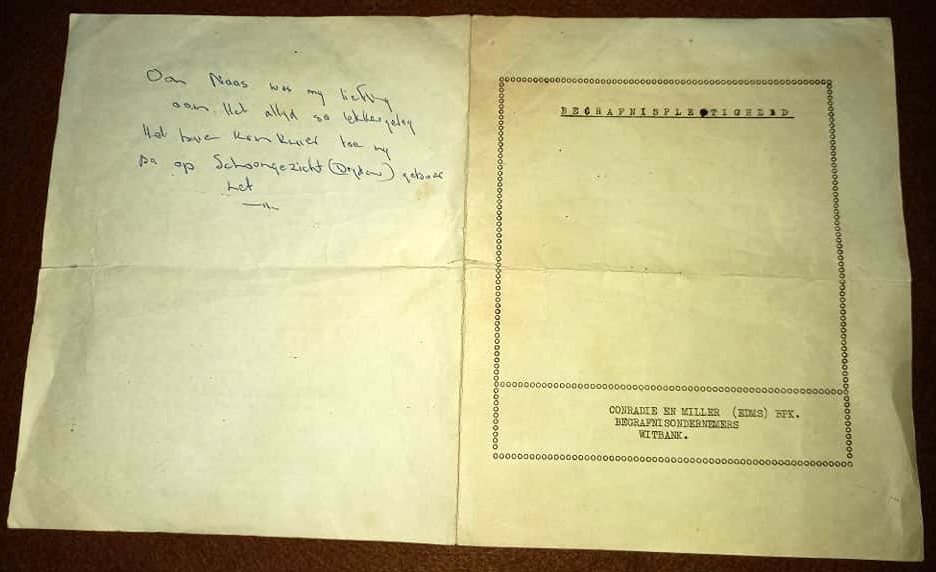 Oom Naas was my liefling
oom. Het altyd so lekker gelag
Het hom kom kuier toe my
pa op Schoongezicht (Dryden) geboer
het
BEGRAFNISPLEGTIGHEID
CONRADIE EN MILLER (EDMS) BPK.
BEGRAFNISONDERNEMERS
WITBANK.